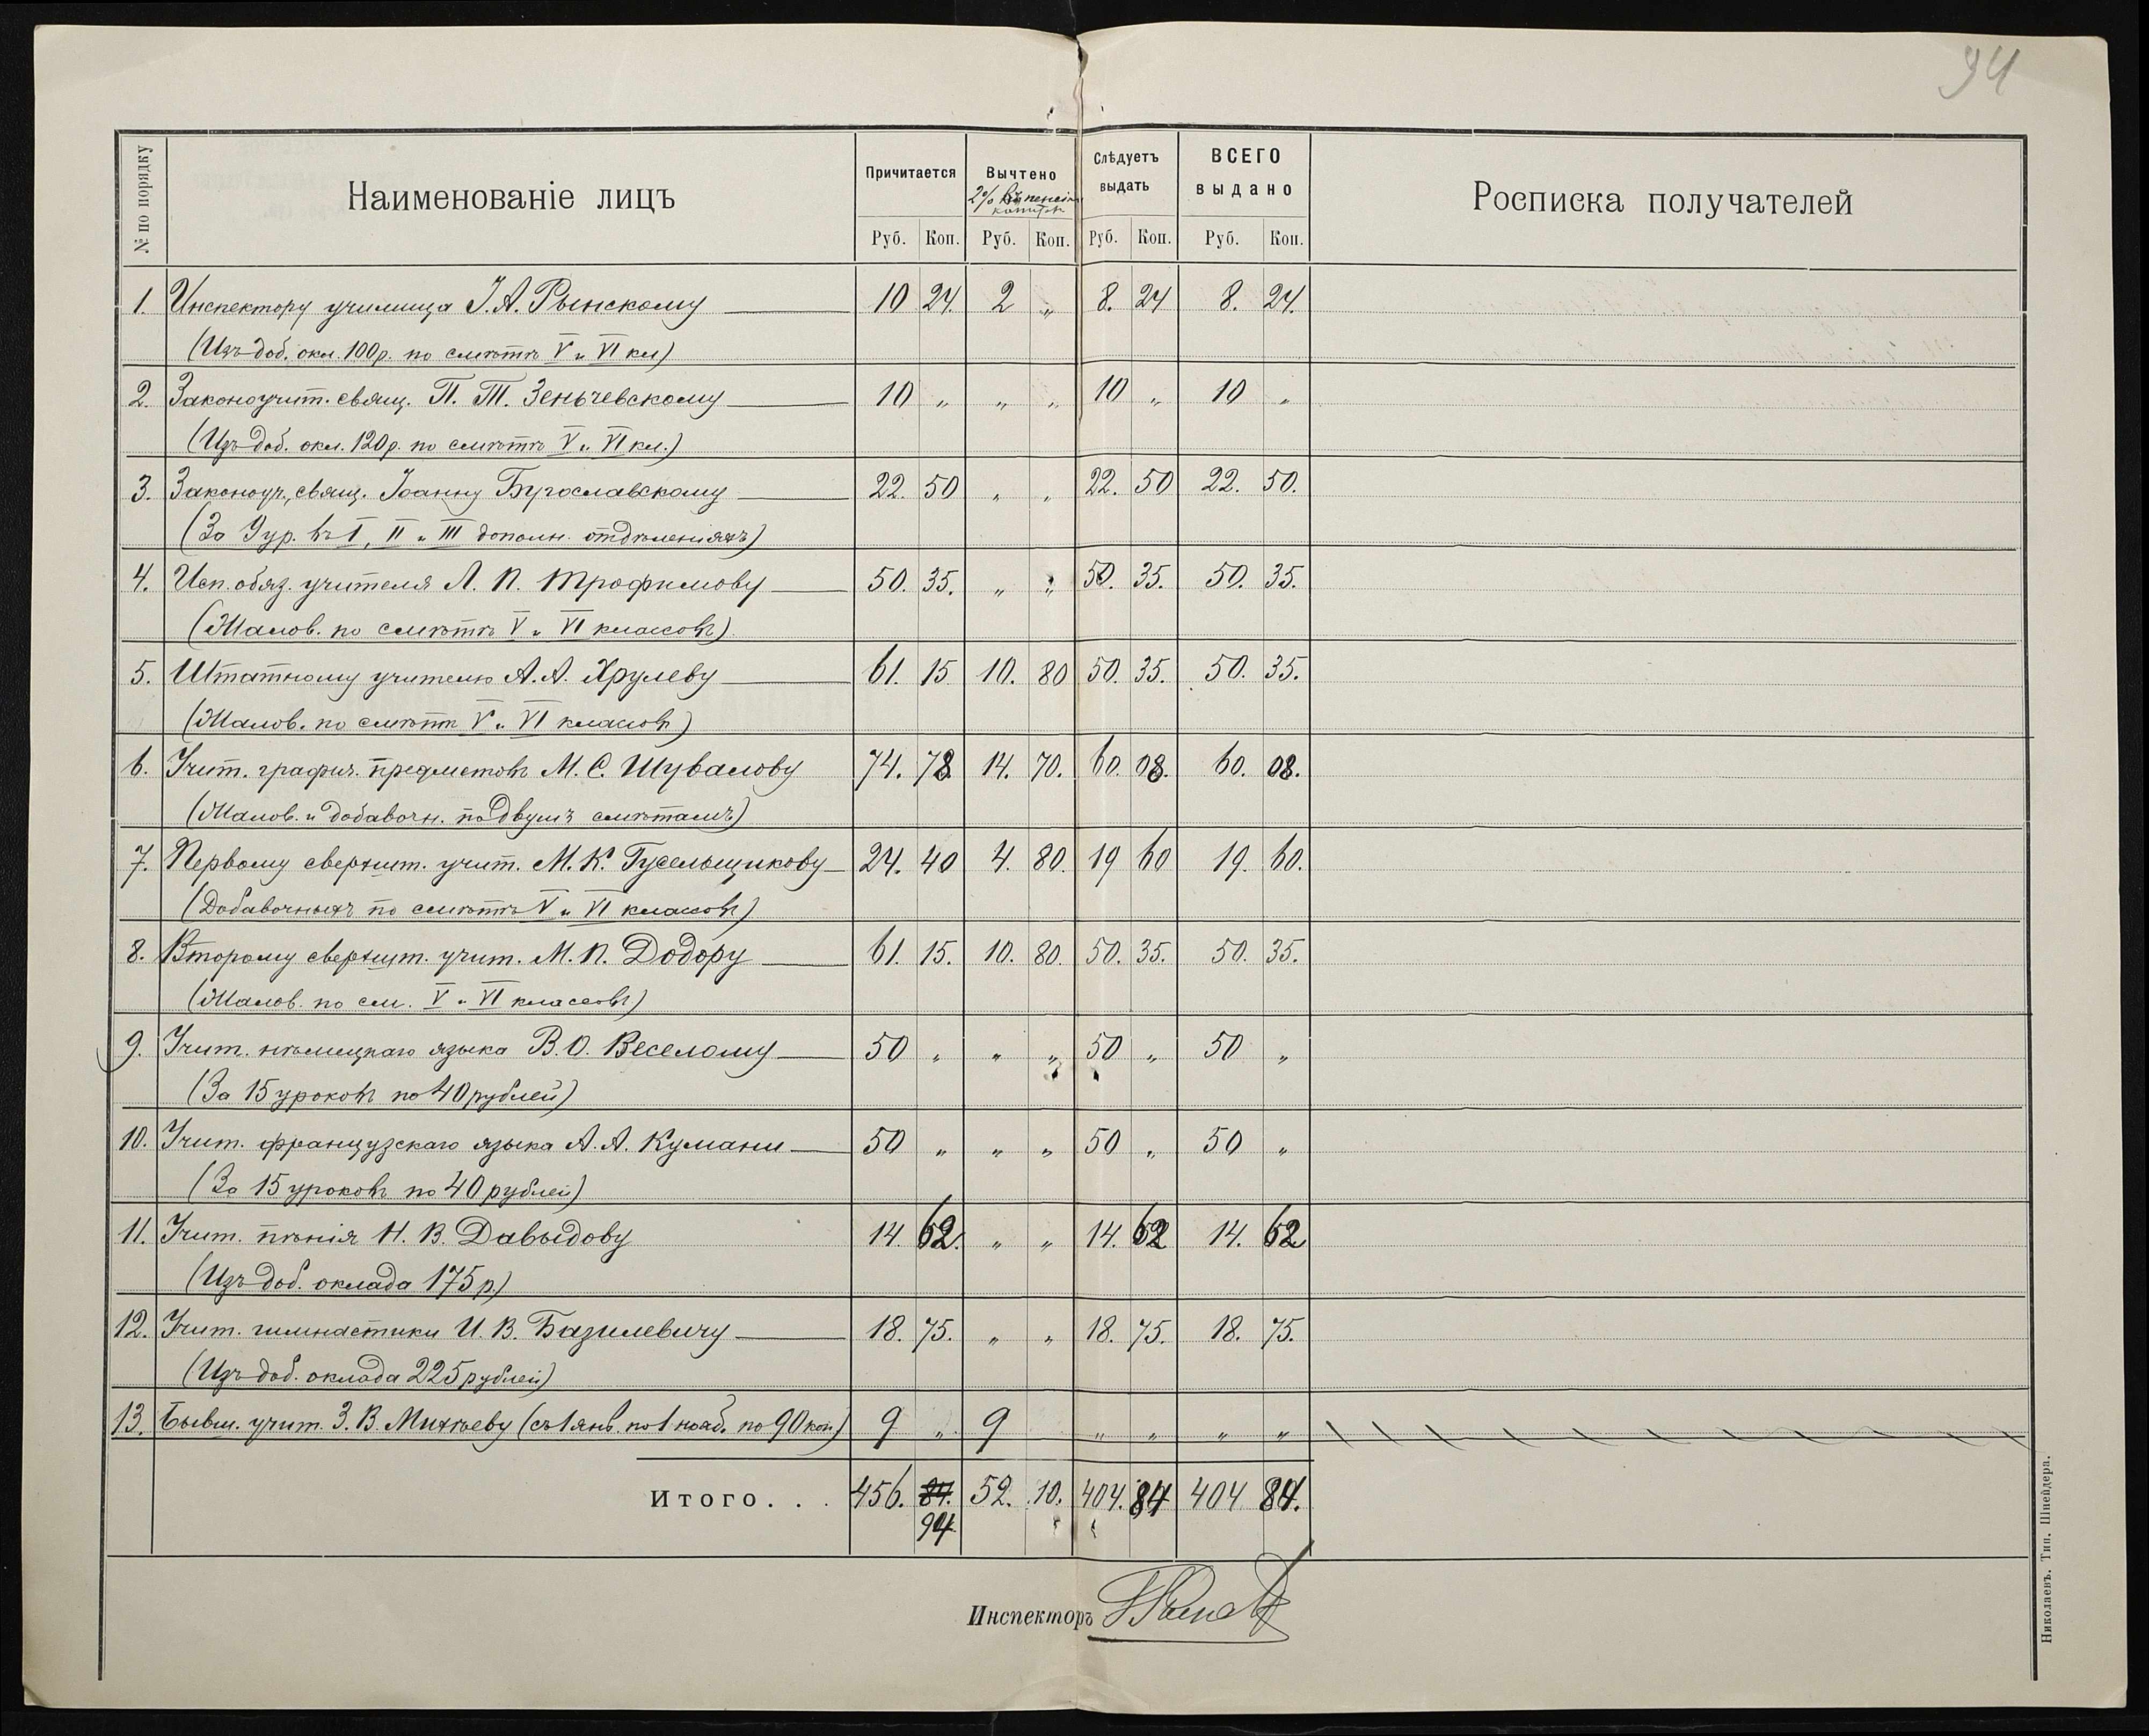 94
№ по порядку
Наименованіе лицъ
Причитается
Вычтено
2% въ пенсіон
Слѣдуетъ выдать
ВСЕГО ВЫДАНО
Росписка получателей
Руб. Коп. Руб. Коп. Руб. Коп. Руб. Коп.
1. Инспектору училища І. А. Рынскому 10 24. 2 „ 8. 24 8. 24.
(Изъ доб. окл. 100 р. по смѣтѣ V и VI кл)
2. Законоучит. свящ. П. Т. Зеньчевскому 10 „ „ „ 10 „ 10 „
(Изъ доб. окл. 120 р. по смѣтѣ V и VI кл.)
3. Законоуч. свящ. Іоанну Бугославскому 22. 50 „ „ 22. 50 22. 50.
(За 9 ур. въ I, II и III дополн. отдѣленіяхъ)
4. Исп. обяз. учителя Л. П. Трофимову 50. 35. „ „ 50. 35. 50. 35.
(Жалов. по смѣтѣ V и VI классовъ)
5. Штатному учителю А. А. Хрулеву 61. 15 10. 80 50. 35. 50. 35.
(Жалов. по смѣтѣ V и VI классовъ)
6. Учит. графич. предметовъ М. С. Шувалову 74. 78 14. 70. 60. 08. 60. 08.
(Жалов. и добавочн. по двумъ смѣтамъ)
7. Первому сверхшт. учит. М. К. Гусельщикову 24. 40 4. 80. 19 60 19. 60.
(Добавочныхъ по смѣтѣ V и VI классовъ)
8. Второму сверхшт. учит. М. П. Додору 61. 15. 10. 80. 50. 35. 50. 35.
(Жалов. по см. V и VI классовъ)
9. Учит. нѣмецкаго языка В. О. Веселому 50 „ „ „ 50 „ 50 „
(За 15 уроковъ по 40 рублей)
10. Учит. французскаго языка А. А. Кумани 50 „ „ „ 50 „ 50 „
(За 15 уроковъ по 40 рублей)
11. Учит. пѣнія Н. В. Давыдову 14. 62. „ „ 14. 62 14. 62
(Изъ доб. оклада 175 р.)
12. Учит. гимнастики И. В. Базилевичу 18. 75. „ „ 18. 75. 18. 75.
(Изъ доб. оклада 225 рублей)
13. Бывш. учит. З. В. Михѣеву (съ 1 янв. по 1 нояб. по 90 коп.) 9 „ 9 „ „ „ „
Итого. . . 456. 84. 52. 10. 404. 84 404 84.
94
Инспекторъ
Николаевъ. Тип. Шнейдера.